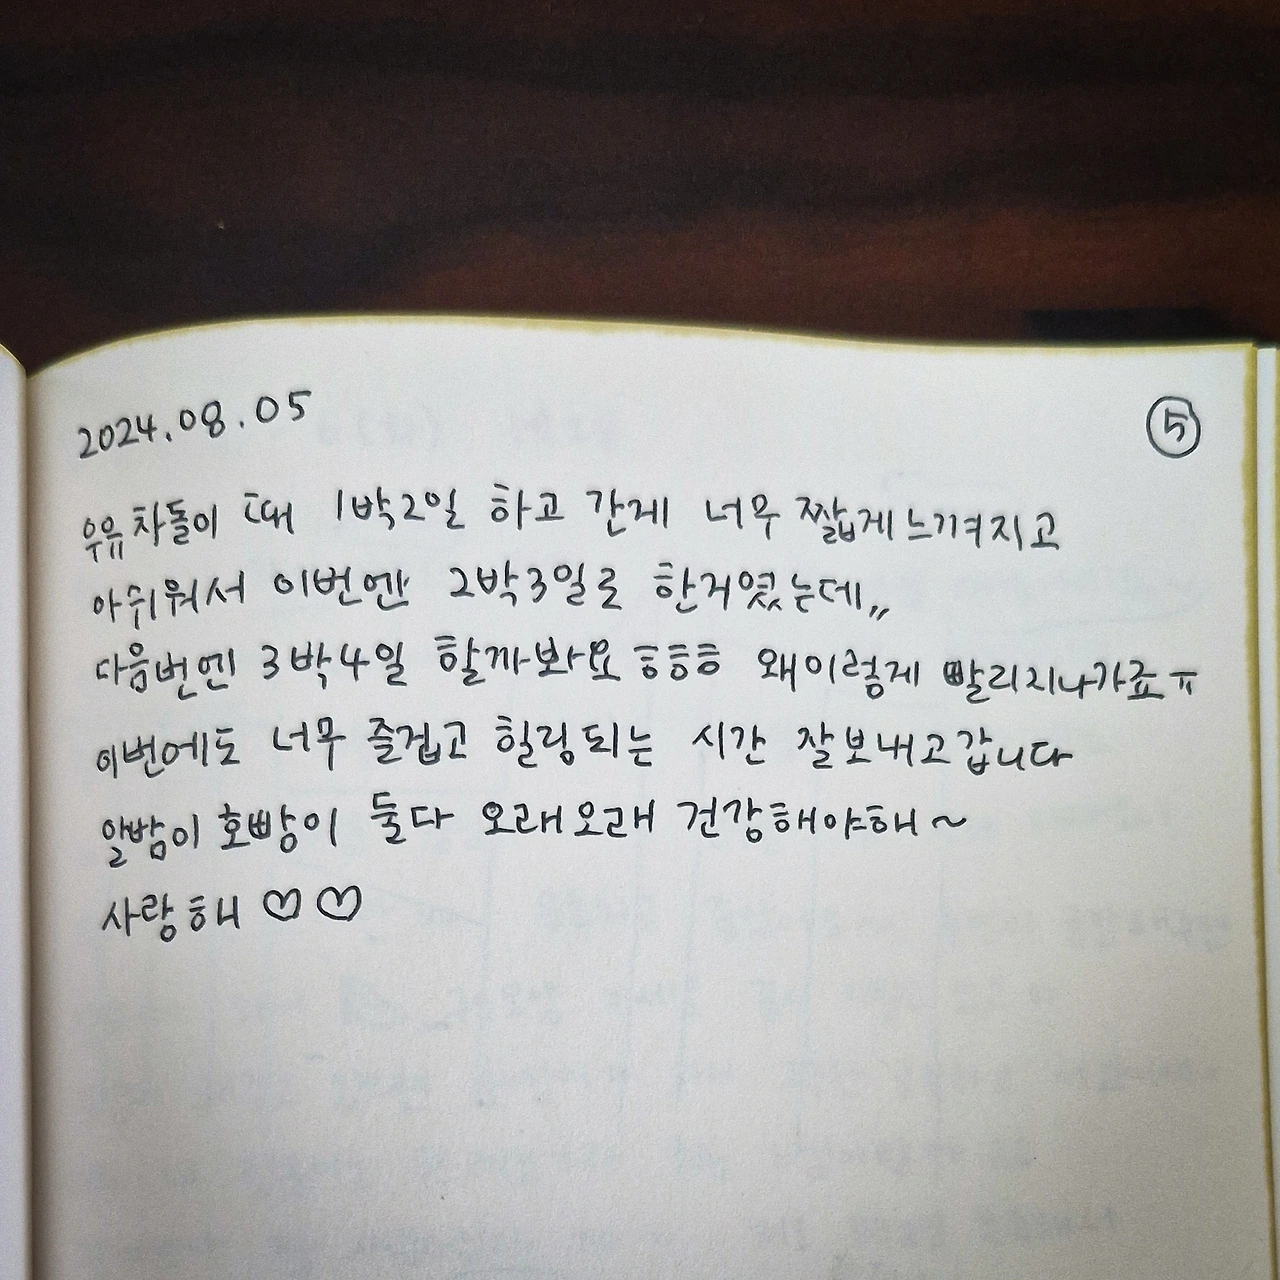 2024.08.05
⑤
우유 차돌이 때 1박2일 하고 간게 너무 짧게 느껴지고
아쉬워서 이번엔 2박3일로 한거였는데,,
다음번엔 3박4일 할까봐요 ㅎㅎㅎ 왜이렇게 빨리지나가죠ㅠ
이번에도 너무 즐겁고 힐링되는 시간 잘보내고갑니다
알밤이 호빵이 둘다 오래오래 건강해야해~
사랑해 ♡♡